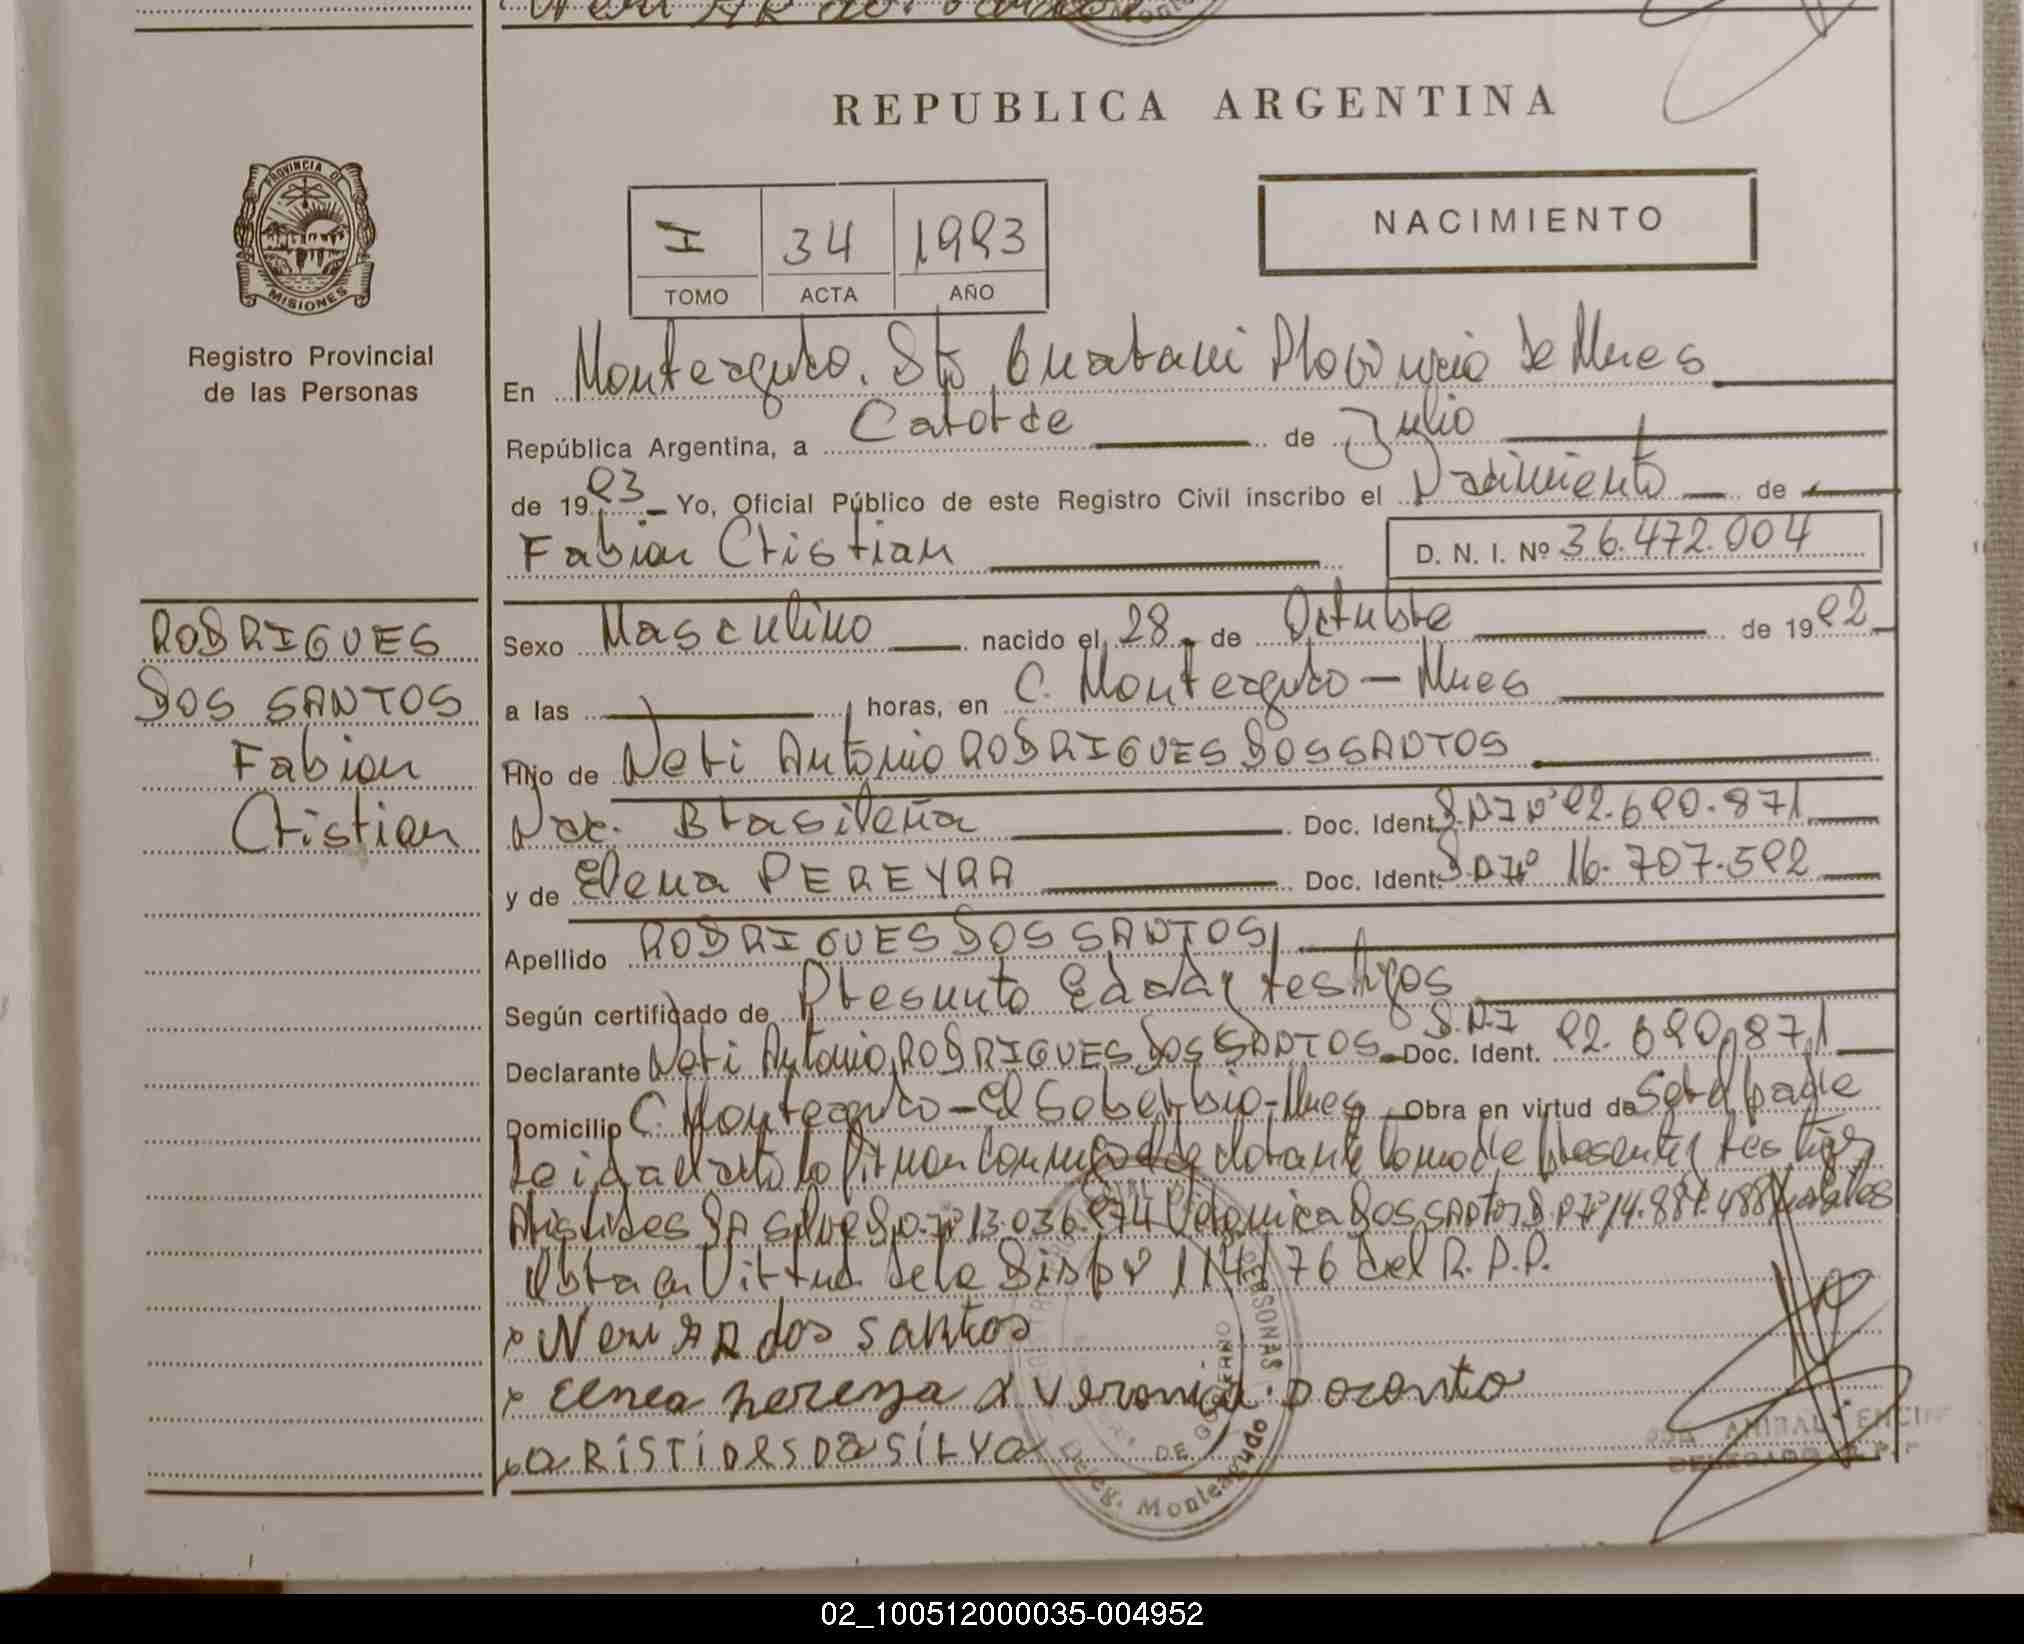 REPUBLICA ARGENTINA
NACIMIENTO
I 34 1993
TOMO ACTA AÑO
PROVINCIA DE
MISIONES
Registro Provincial
de las Personas
RODRIGUES
DOS SANTOS
Fabian
Cristian
En Monteagudo. Dto Guarani Provincia de Mnes
República Argentina, a Catorce de Julio
de 1993 Yo, Oficial Público de este Registro Civil inscribo el Nacimiento de
Fabian Cristian D. N. I. Nº 36.472.004
Sexo Masculino nacido el 28 de Octubre de 1992
a las horas, en C. Monteagudo - Mnes
Hijo de Neri Antonio RODRIGUES DOS SANTOS
Nac. Brasileña Doc. Ident. D.N.I Nº 92.690.871
y de Elena PEREYRA Doc. Ident. D.N.Iº 16.707.592
Apellido RODRIGUES DOS SANTOS
Según certificado de Presunta Edad y testigos
Declarante Neri Antonio RODRIGUES DOS SANTOS Doc. Ident. D.N.I 92.690.871
Domicilio C. Monteagudo - El Soberbio - Mnes Obra en virtud de Ser el padre
Leida el acta la firman conmigo el declarante la madre presente y testigos
Aristides DA Silva D.N.Iº 13.036.974 Veronica DOS SANTOS D.N.Iº 14.881.488
Obra en Virtud de la Dispo 114/76 del R.P.P.
x Neri AR dos santos
x elena pereyra x veronica
x aRiSTiDesDa SiLVa
PERSONAS
DE GOBIERNO
Deleg. Monteagudo
ANIBAL ENCIN
DELEGADO
02_100512000035-004952